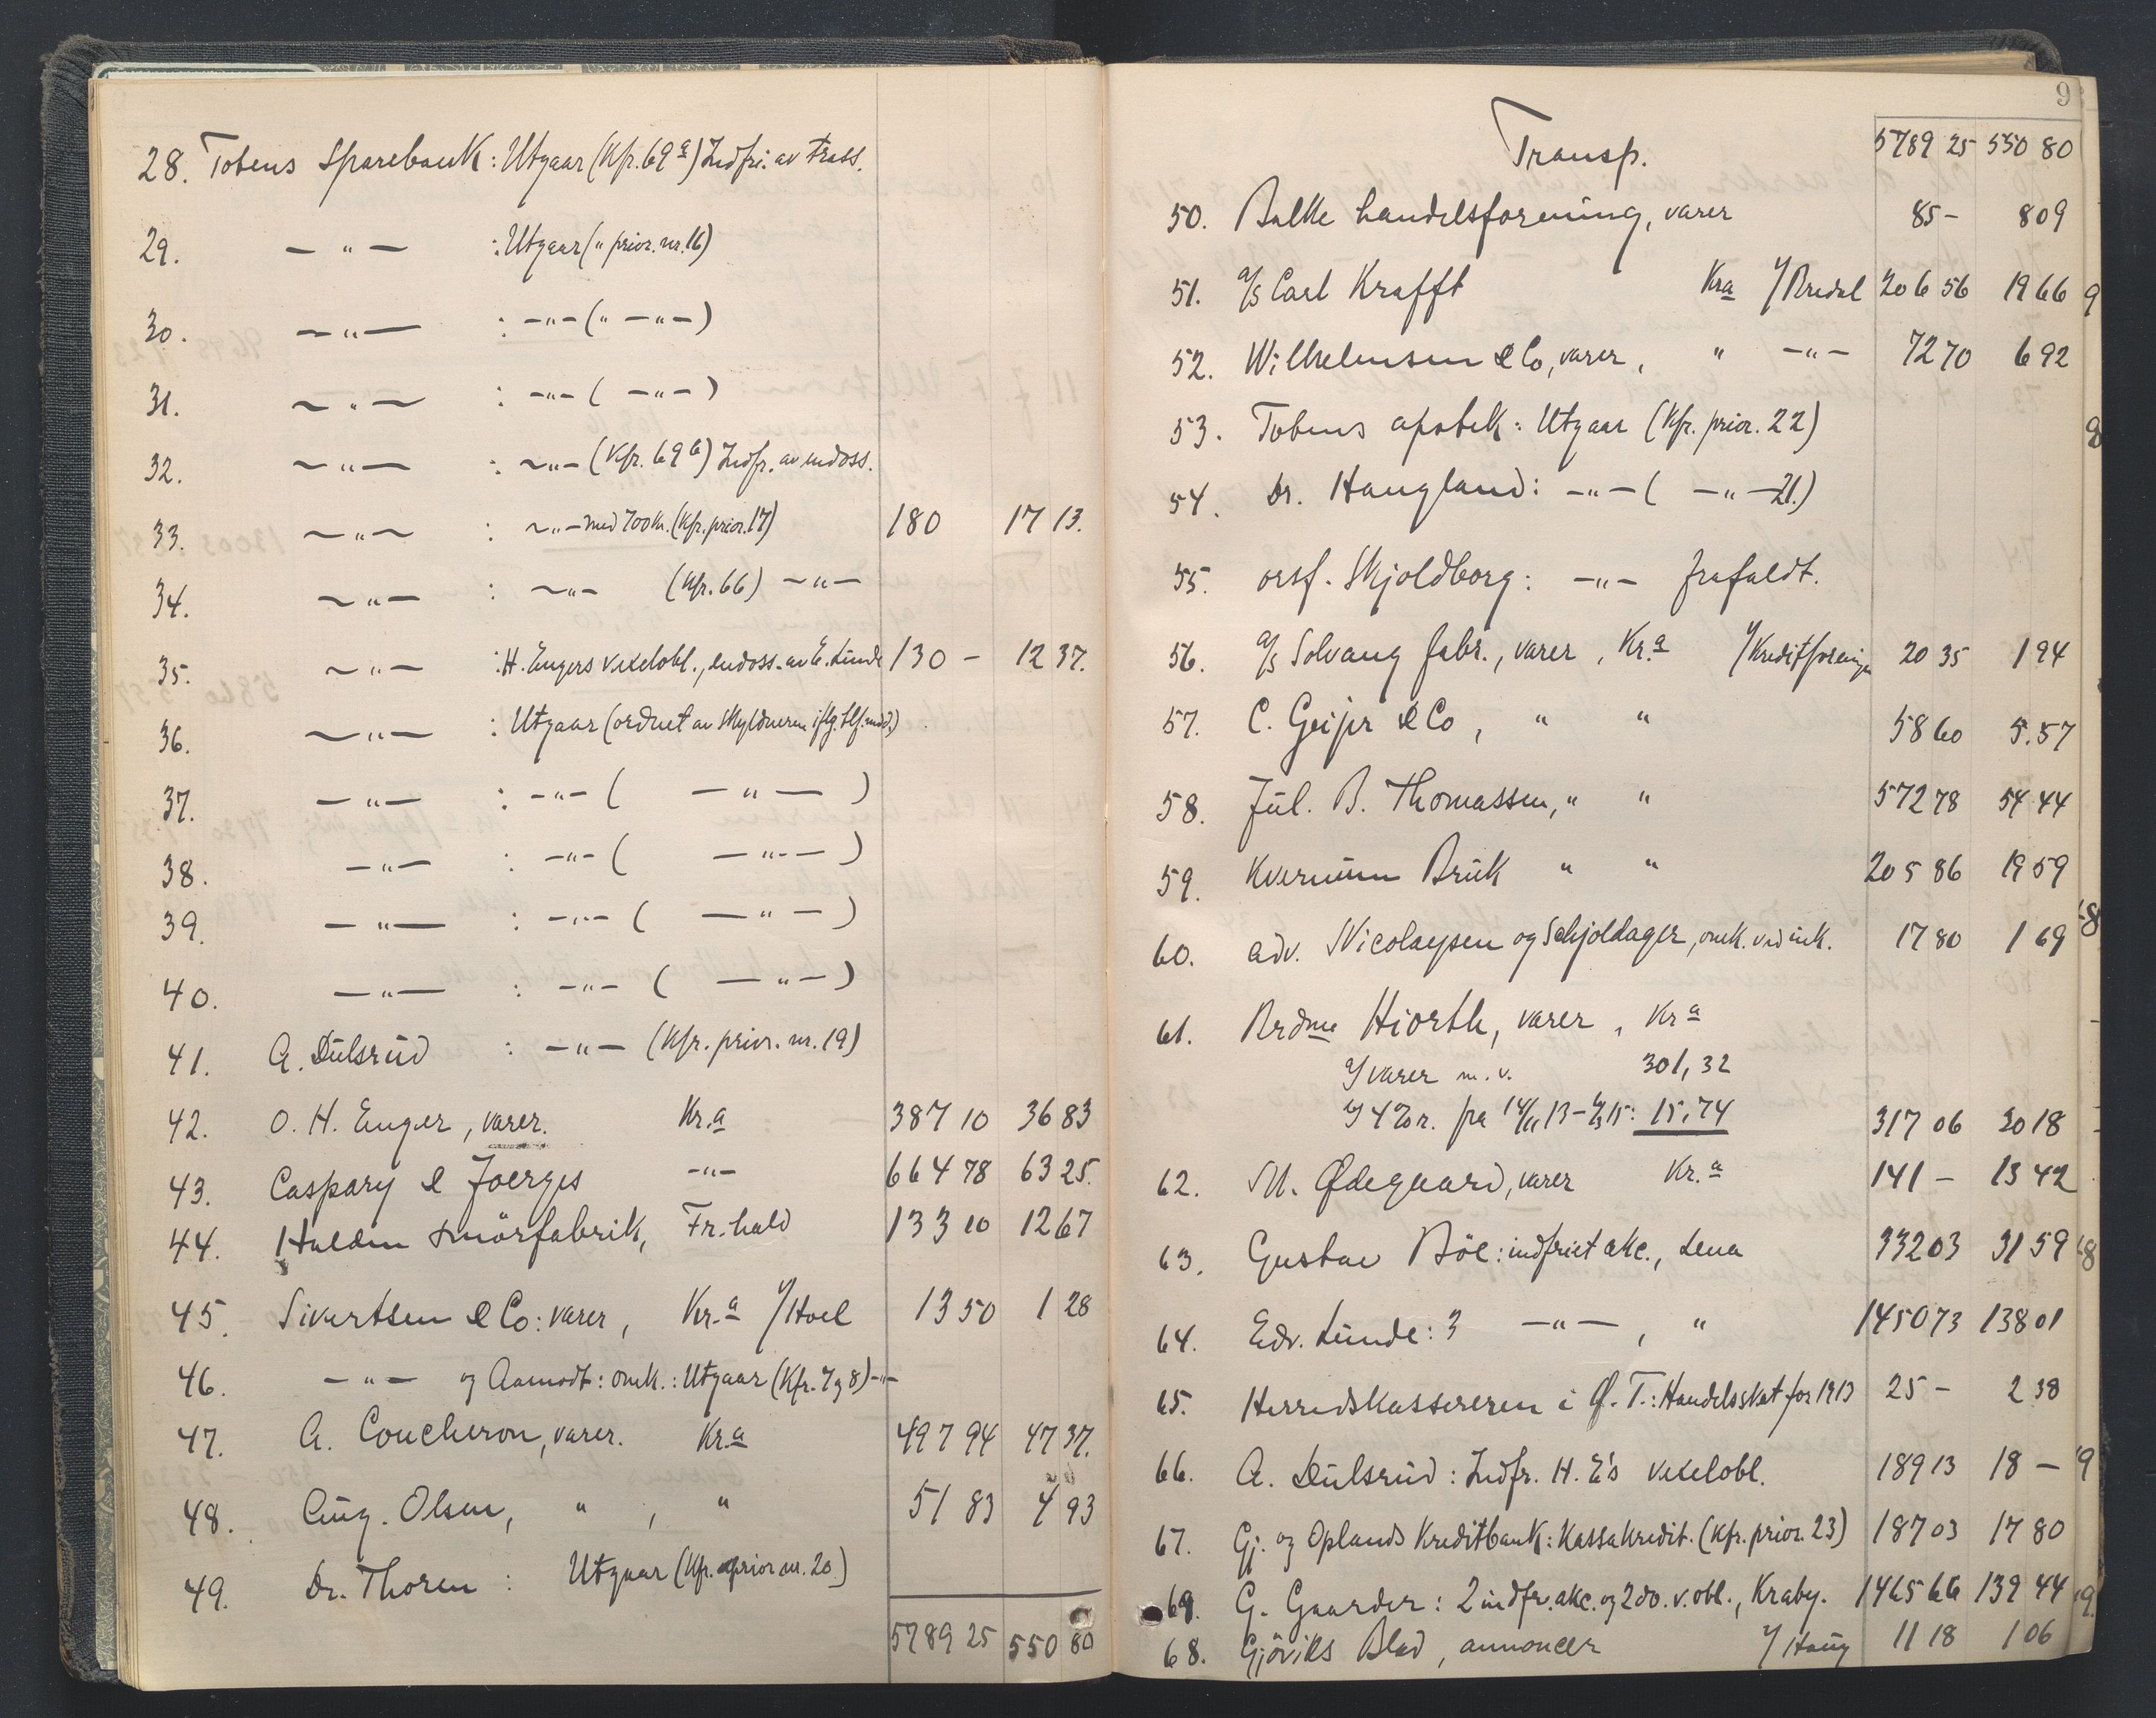 28. Totens Sparebank: Utgaar (Kfr. 69a) Indfri. av trass.
29. — " — : Utgaar (" prior. nr. 16)
30. — " — : — " — (" — " —)
31. — " — : — " — ( — " — )
32. — " — : — " — (Kfr. 69b) Indfr. av endoss.
33. — " — : — " — med 700 kr. (Kfr. prior. 17) 180 17 13.
34. — " — : — " — (Kfr. 66) — " —
35. — " — : H. Engers vexelobl., endoss. av E. Lunde 130 — 12 37.
36. — " — : Utgaar (ordnet av skyldneren iflg. tlf. med.)
37. — " — : — " — ( — " — )
38. — " — : — " — ( — " — )
39. — " — : — " — ( — " — )
40. — " — : — " — ( — " — )
41. A. Dulsrud : — " — (Kfr. prior. nr. 19)
42. O. H. Enger, varer. Kr.a 387 10 36 83
43. Caspary & Joerges — " — 664 78 63 25.
44. Halden smörfabrik, Fr. hald 133 10 12 67
45. Sivertsen & Co: varer, Kr.a v/ Hoel 13 50 1 28
46. — " — og Aamodt: omk.: Utgaar (Kfr. 7 og 8) — " —
47. A. Coucheron, varer. Kra 497 94 47 37.
48. Aug. Olsen, " , " 51 83 4 93
49. Dr. Thoren : Utgaar (Kfr. prior nr. 20)
5789 25 550 80
9
Transp. 5789 25 550 80
50. Balke handelsforening, varer 85 — 8 09
51. a/s Carl Krafft Kra v/ Bredal 206 56 19 66
52. Wilhelmsen & Co, varer, " — " — 72 70 6 92
53. Totens apotek: Utgaar (Kfr. prior. 22)
54. Dr. Haugland: — " — ( — " — 21.)
55. orsf. Skjoldborg: — " — frafaldt.
56. a/s Solvang fabr., varer, Kr.a v/ Kreditforeningen 20 35 1 94
57. C. Geijer & Co, " " 58 60 5.57
58. Jul. B. Thomassen, " " 572 78 54 44
59. Kvernum Bruk " " 205 86 19 59
60. adv. Nicolaysen og Schjoldager, omk. ved ink. 17 80 1 69
61. Brdne Hiorth, varer, Kra
a/ varer m. v. 301,32
b/ 4% r. fra 14/11 13 – 4/3 15: 15,74 317 06 30 18
62. M. Ødegaard, varer Kr.a 141 — 13 42
63. Gustav Böe: indfriet akc., Lena 332 03 31 59
64. Edv. Lunde: 3 — " — , " 1450 73 138 01
65. Herredskassereren i Ø. T.: Handelsskat for 1913 25 — 2 38
66. A. Dulsrud: Indfr. H. E's vexelobl. 189 13 18 —
67. Gj. og Oplands Kreditbank: Kassakredit. (Kfr. prior. 23) 187 03 17 80
69. G. Gaarder: 2 indfr. akc. og 2 do. v. obl., Kraby. 1465 66 139 44
68. Gjöviks Blad, annoncer v/ Haug 11 18 1 06